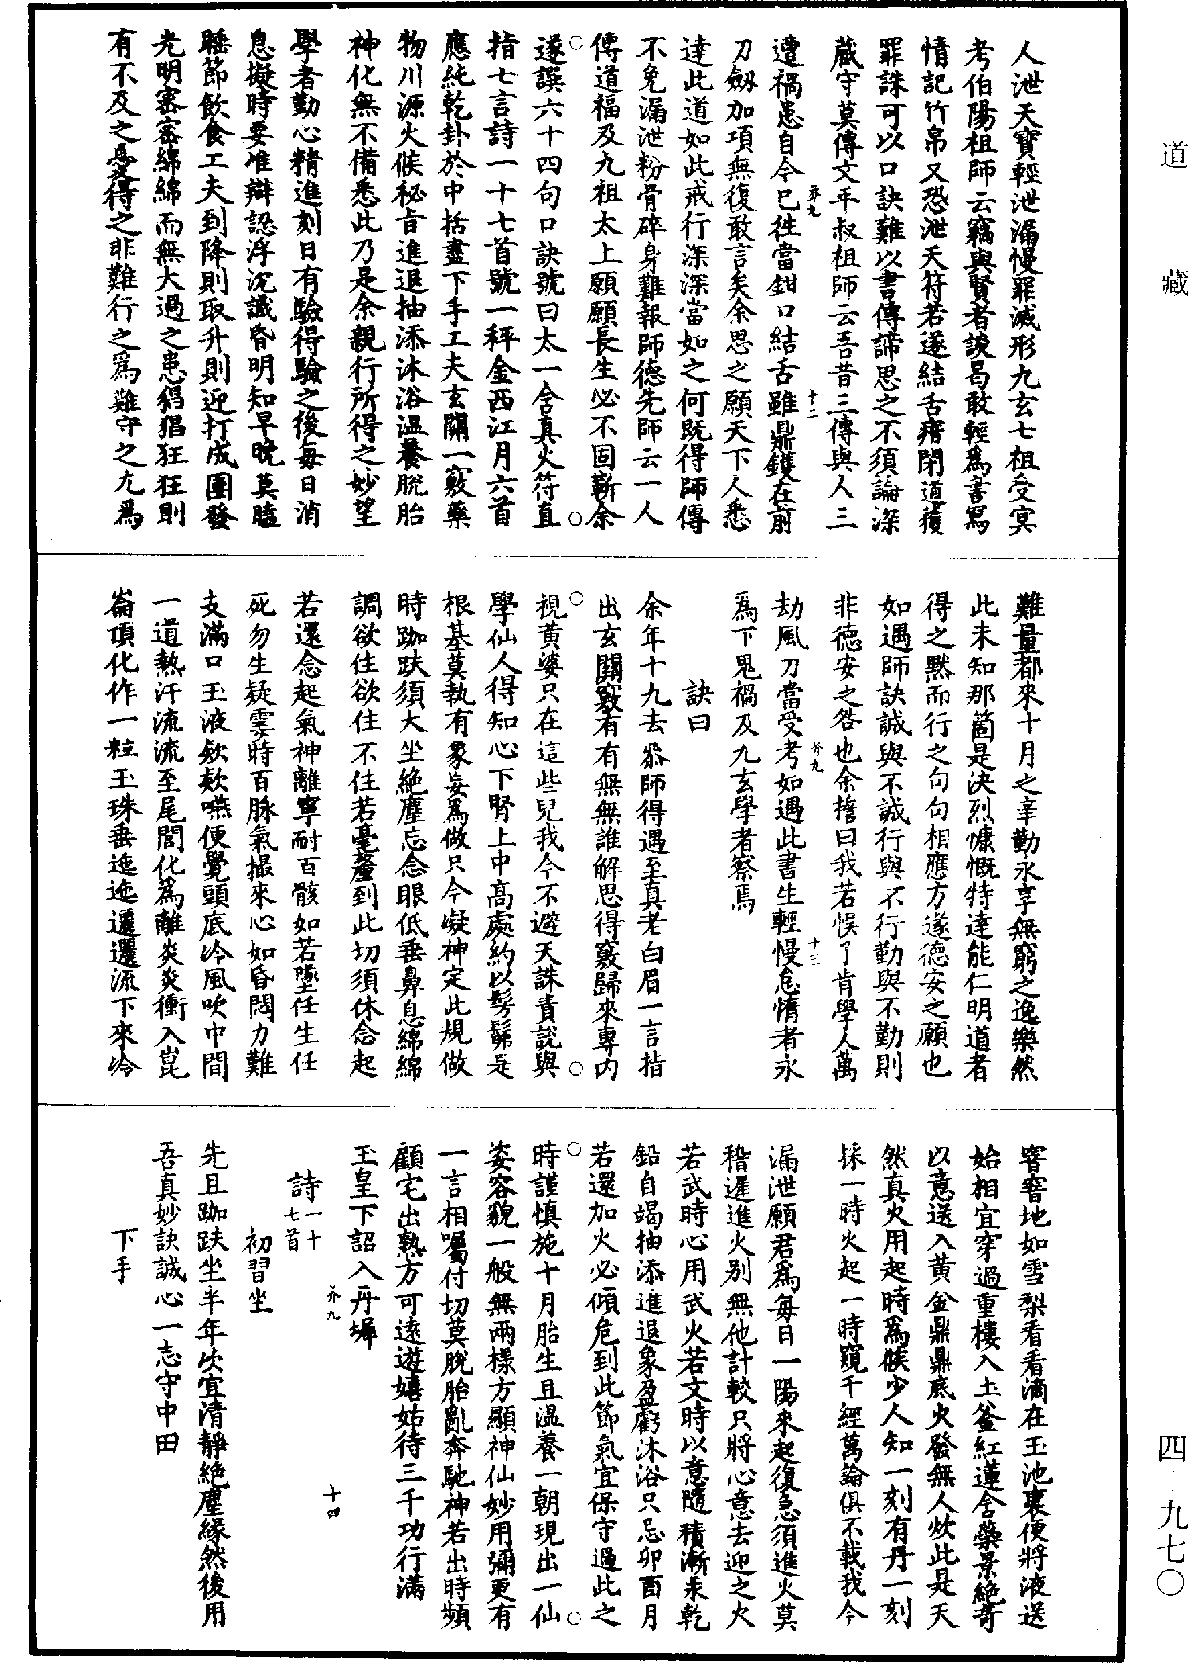 道藏
四·九七〇
人泄天寶輕泄漏慢罪滅形九玄七祖受冥
考伯陽祖師云竊與賢者談曷敢輕爲書寫
惰記竹帛又恐泄天符若遂結舌瘖閉道獲
罪誅可以口訣難以書傳諦思之不須論深
藏守莫傳文平叔祖師云吾昔三傳與人三
遭禍患自今已徃當鉗口結舌雖鼎鑊在前
斧九
十二
刀劔加項無復敢言矣余思之願天下人悉
達此道如此戒行深深當如之何既得師傳
不免漏泄粉骨碎身難報師德先師云一人
傳道福及九祖太上願願長生必不固蘄余
遂譔六十四句口訣號曰太一含真火符直
指七言詩一十七首號一秤金西江月六首
應純乾卦於中括盡下手工夫玄關一竅藥
物川源火候秘旨進退抽添沐浴溫養脫胎
神化無不備悉此乃是余親行所得之妙望
學者勤心精進刻日有驗得驗之後每日消
息擬時要准辯認浮沉識昏明知早晚莫瞌
睡節飲食工夫到降則取升則迎打成團發
光明密密綿綿而無大過之患猖猖狂狂則
有不及之憂得之非難行之爲難守之尤爲
難量都來十月之辛勤永享無窮之逸樂然
此未知那箇是決烈慷慨特達能仁明道者
得之黙而行之句句相應方遂德安之願也
如遇師訣誠與不誠行與不行勤與不勤則
非德安之咎也余誓曰我若悮了肯學人萬
劫風刀當受考如遇此書生輕慢怠惰者永
斧九
十三
爲下鬼禍及九玄學者察焉
訣曰
余年十九去叅師得遇至真老白眉一言指
出玄關竅有有無無誰解思得竅歸來專內
視黃婆只在這些兒我今不避天誅責說與
學仙人得知心下腎上中高處約以髣髴是
根基莫執有象妄爲做只今凝神定此規做
時跏趺須大坐絶塵忘念眼低垂鼻息綿綿
調欲住欲住不住若毫釐到此切須休念起
若還念起氣神離寧耐百骸如若墜任生任
死勿生疑霎時百脉氣撮來心如昏悶力難
支滿口玉液欸欸嚥便覺頭底冷風吹中間
一道熱汗流流至尾閭化爲離炎炎衝入崑
崙頂化作一粒玉珠垂迤迤邐邐流下來冷
窨窨地如雪梨看看滴在玉池裏便將液送
始相宜穿過重樓入土釜紅蓮含藥景絶奇
以意送入黃金鼎鼎底火發無人炊此是天
然真火用起時爲候少人知一刻有丹一刻
採一時火起一時窺千經萬論俱不載我今
漏泄願君爲每日一陽來起復急須進火莫
稽遲進火別無他計較只將心意去迎之火
若武時心用武火若文時以意隨積漸汞乾
鉛自竭抽添進退象盈虧沐浴只忌卯酉月
若還加火必傾危到此節氣宜保守過此之
時謹慎施十月胎生且溫養一朝現出一仙
姿容貌一般無兩樣方顯神仙妙用彌更有
一言相囑付切莫脫胎亂奔馳神若出時頻
顧宅出熟方可遠遊嬉姑待三千功行滿
玉皇下詔入丹墀
斧九
十四
詩一十七首
初習坐
先且跏趺坐半年次宜清靜絶塵緣然後用
吾真妙訣誠心一志守中田
下手